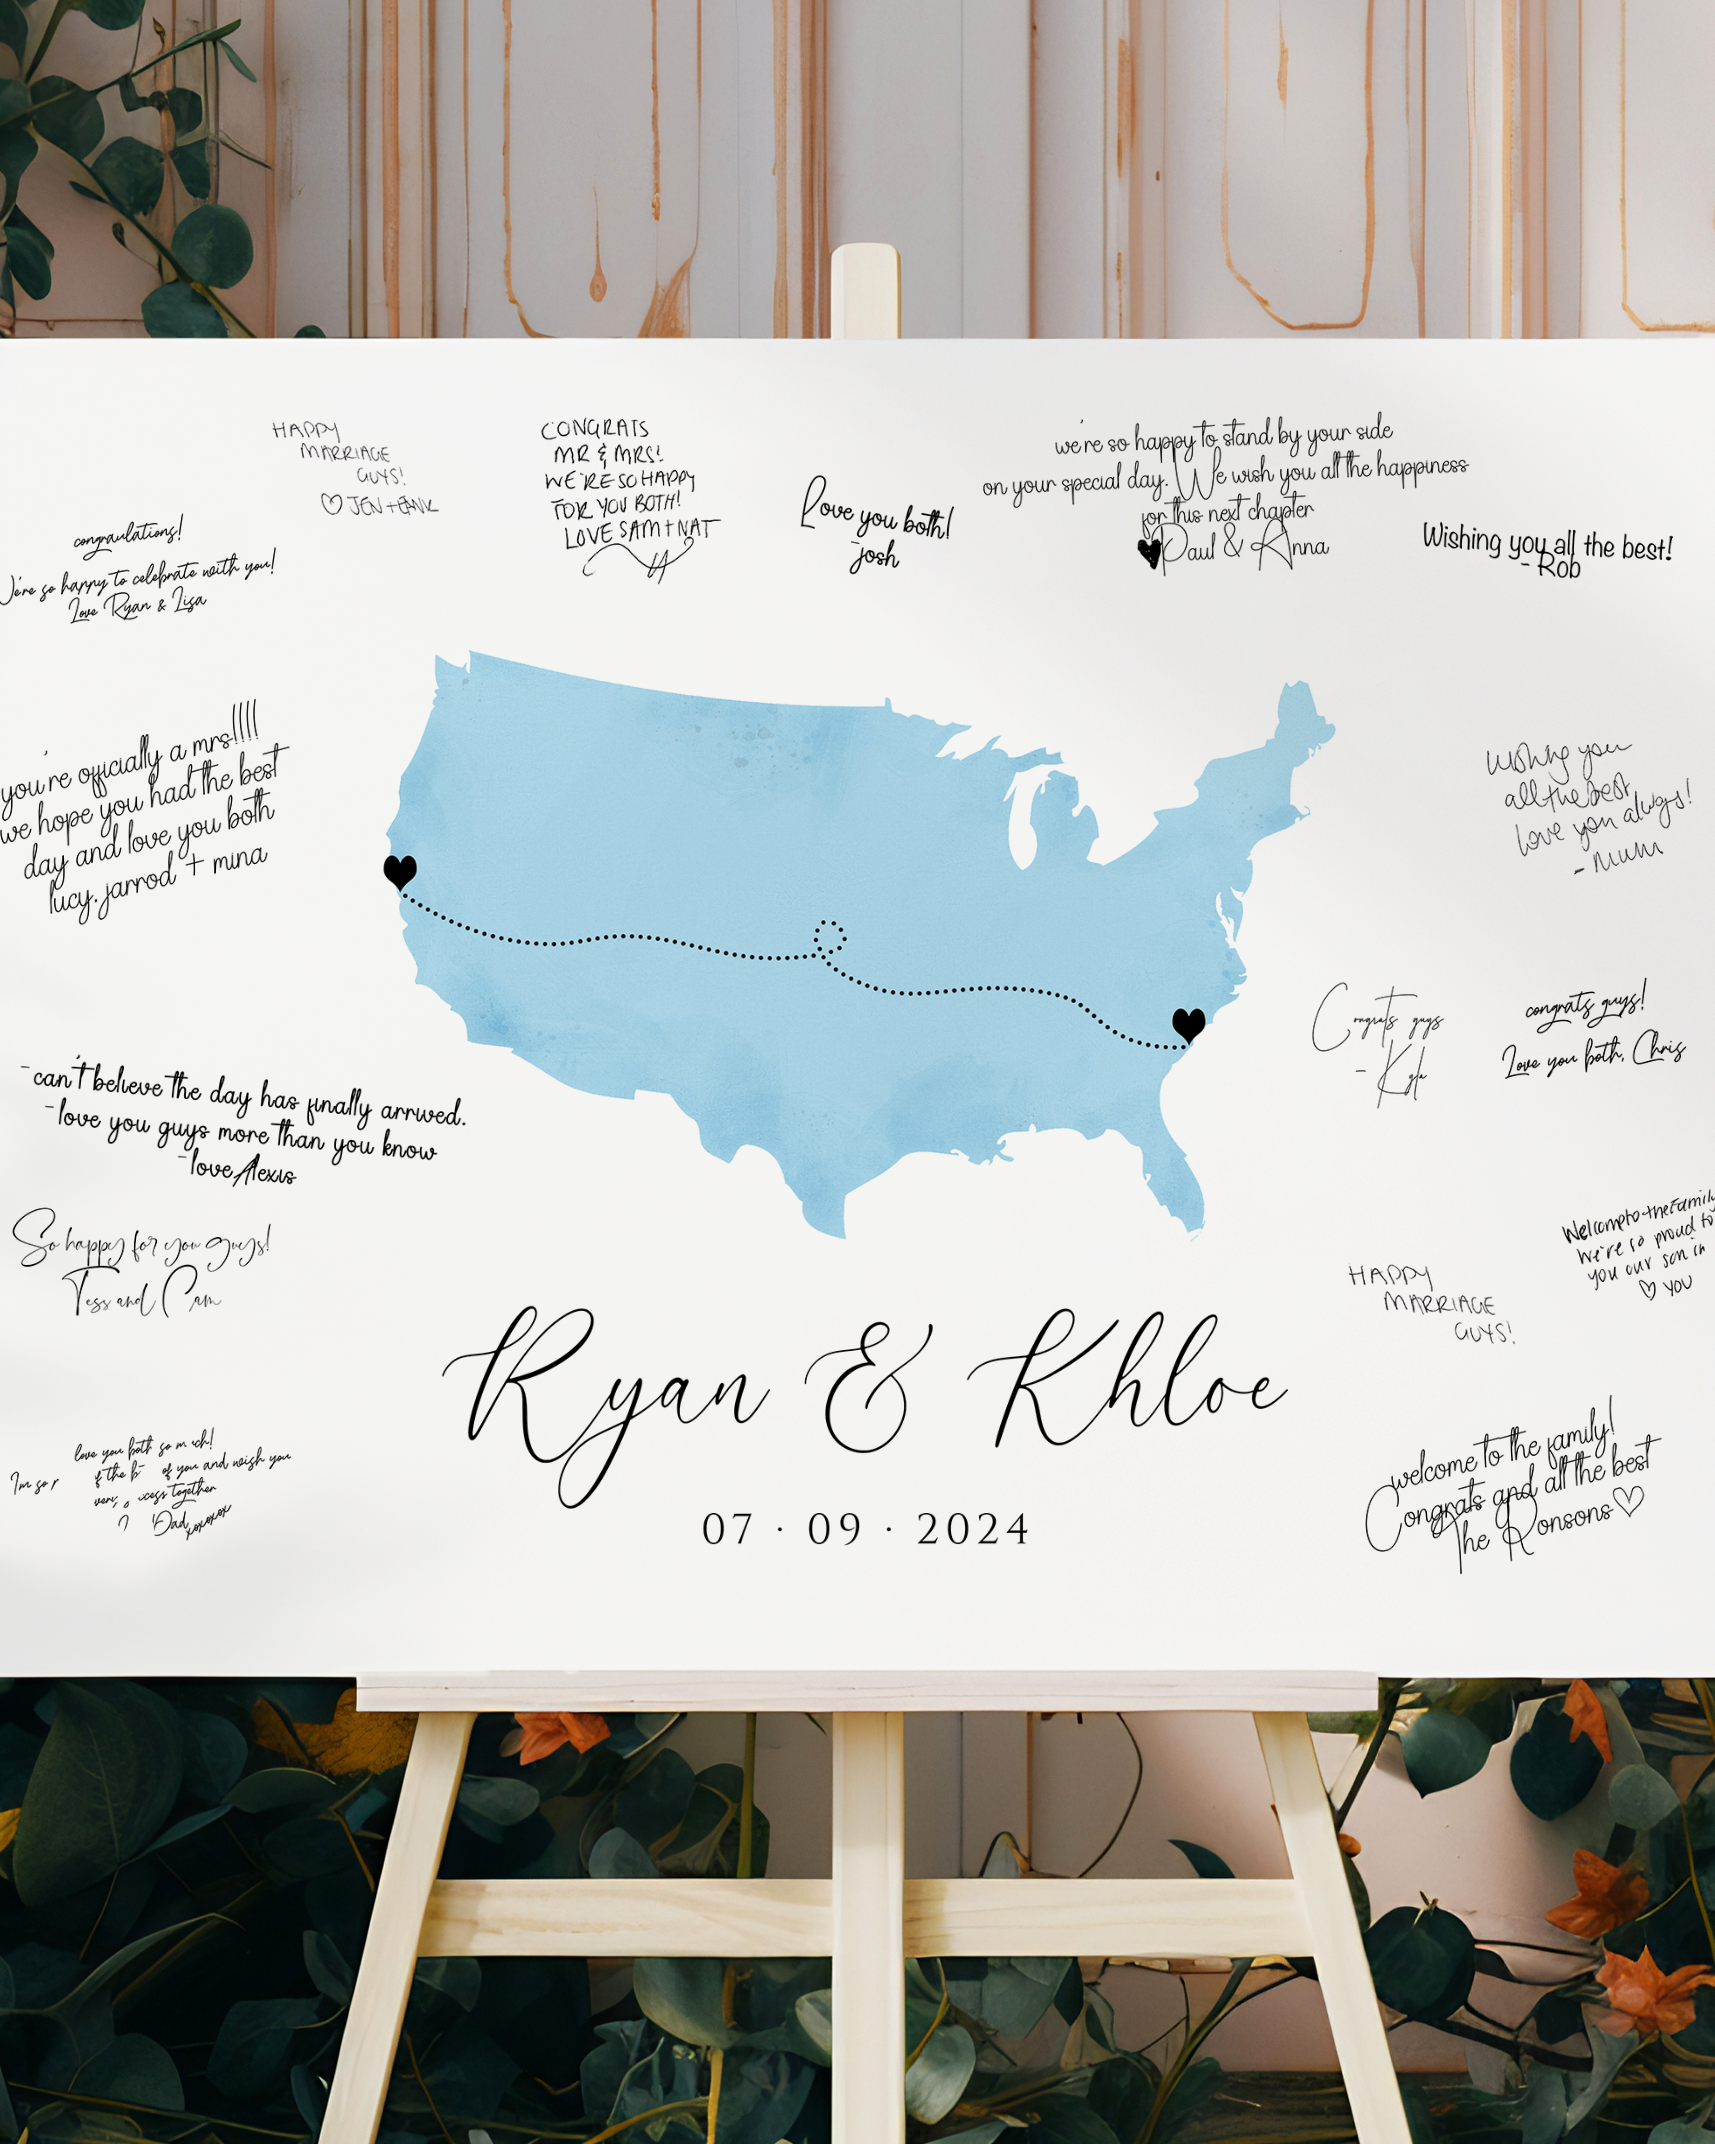 HAPPY
MARRIAGE
GUYS!
♡ JEN +
CONGRATS
MR & MRS!
WE'RE SO HAPPY
FOR YOU BOTH!
LOVE SAM + NAT
Love you both!
-josh
we're so happy to stand by your side
on your special day. We wish you all the happiness
for this next chapter
♥Paul & Anna
Wishing you all the best!
- Rob
congraulations!
We're so happy to celebrate with you!
Love Ryan & Lisa
you're officially a mrs!!!!
we hope you had the best
day and love you both
lucy. jarrod + mina
wishing you
all the best
love you always!
- mum
Congrats guys
- Kyla
congrats guys!
Love you both, Chris
-can't believe the day has finally arrived.
-love you guys more than you know
-love Alexis
So happy for you guys!
Tess and Cam
Welcome to the family
We're so proud to
you our son in
♡ you
HAPPY
MARRIAGE
GUYS!
Ryan & Khloe
07 · 09 · 2024
love you both so much!
I'm so
of the of you and wish you
together
Dad
xoxoxox
welcome to the family!
Congrats and all the best
The Ronsons♡